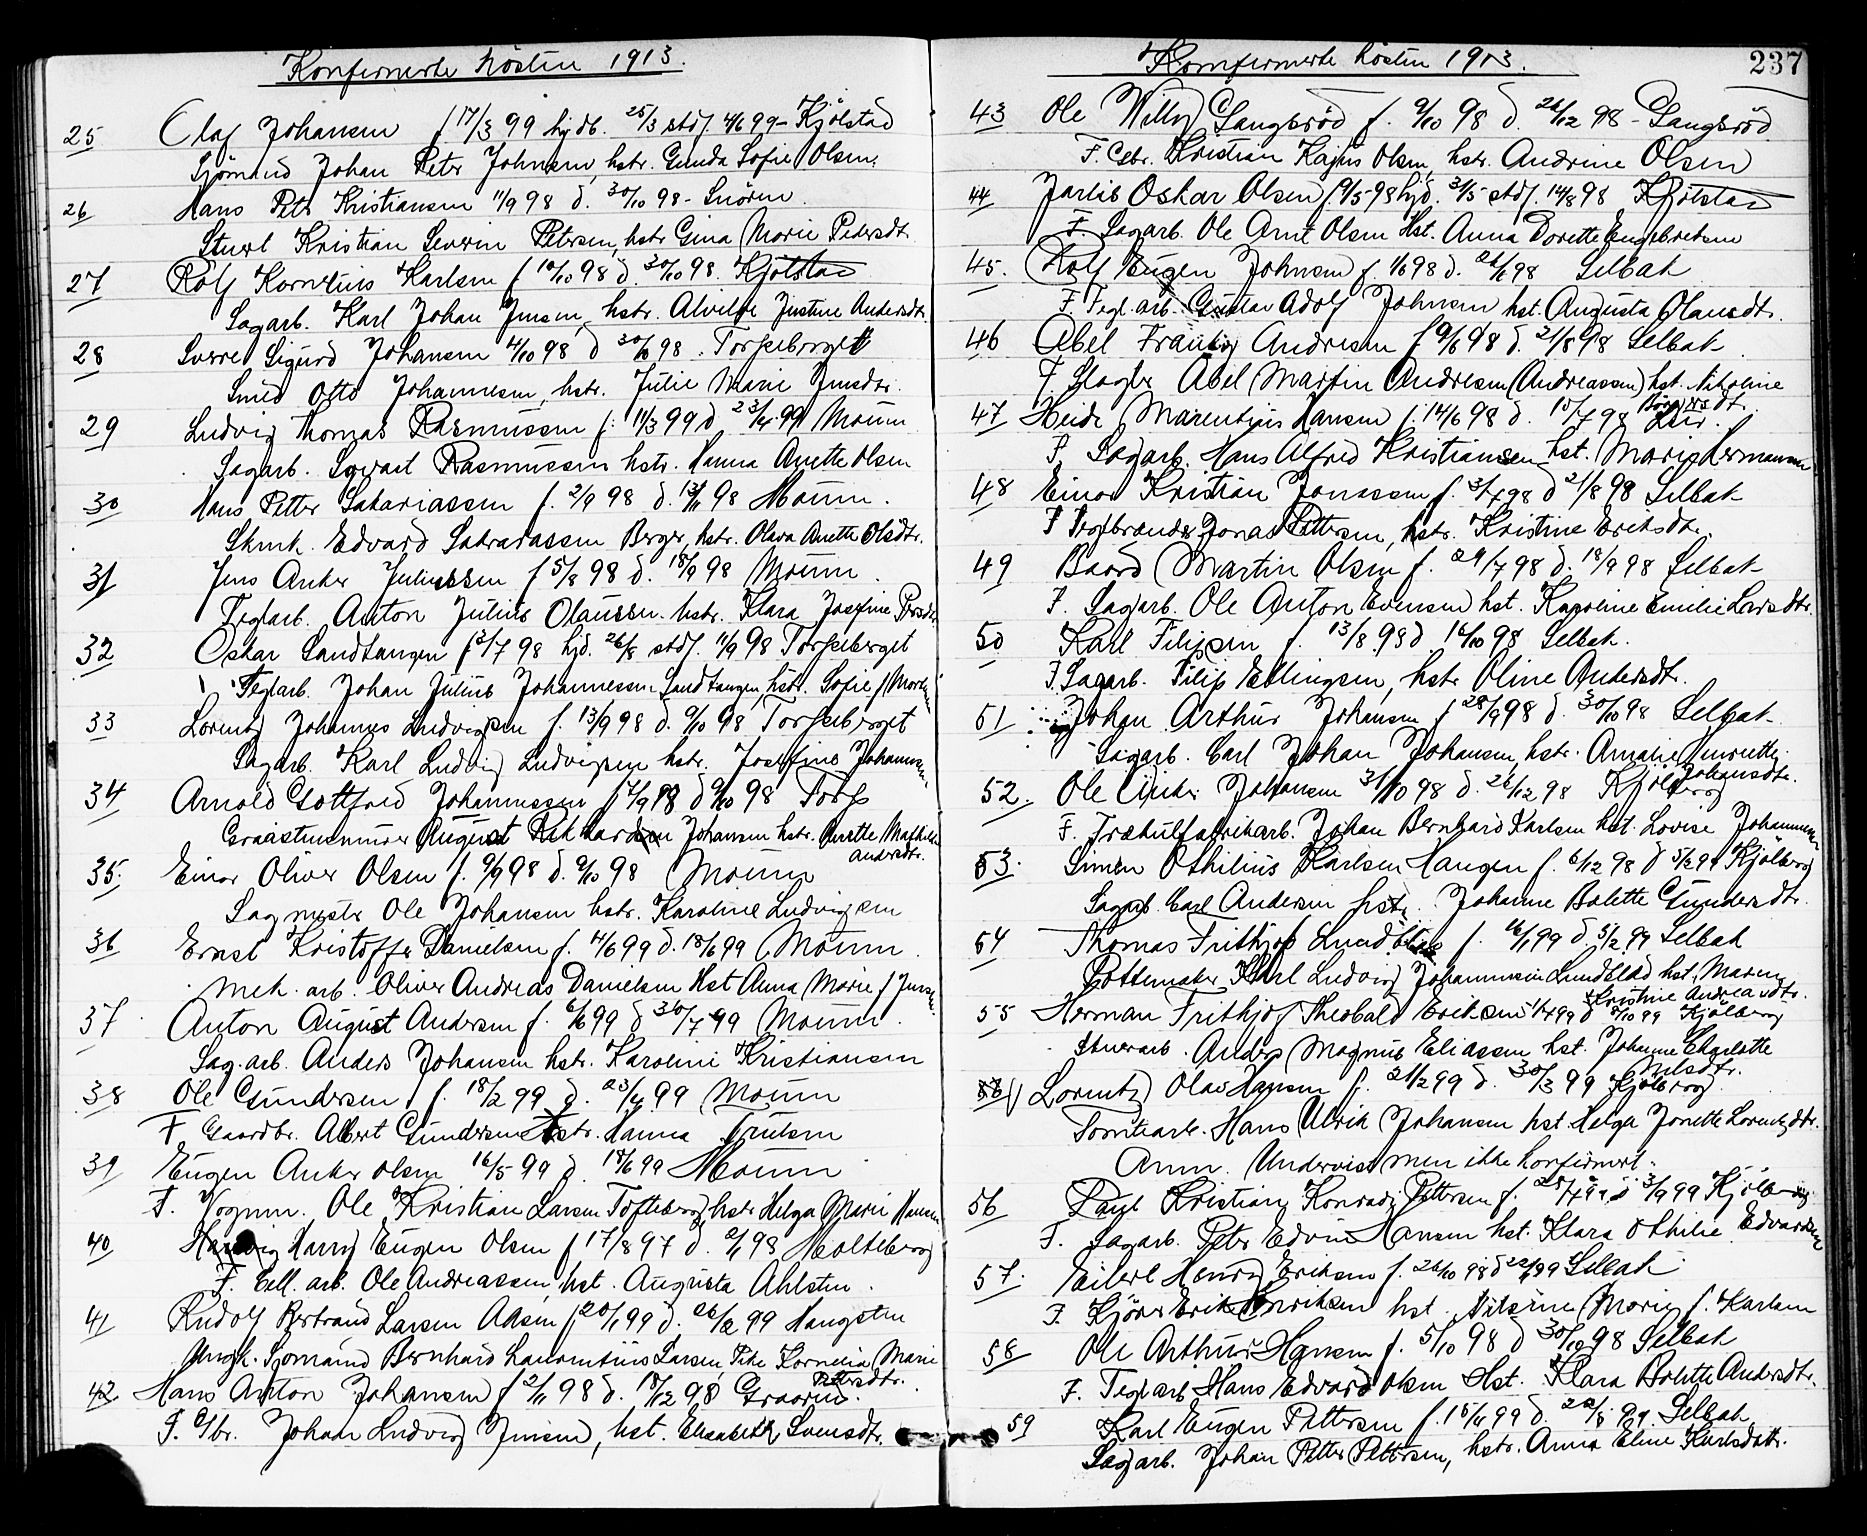 Konfirmerte høsten 1913.
25 Olaf Johansen f 17/3 99 hjdb. 25/3 stdf. 4/6 99 - Kjølstad
Sjømand Johan Peter Johnsen, hstr. Gunda Sofie Olsen.
26 Hans Petr Kristiansen 11/9 98 d. 30/10 98 -
Stuerl Kristian Severin Petersen, hstr Gina Marie Pedersdt.
27 Rolf Kornelius Karlsen f 10/10 98 d. 30/10 98. Kjølstad
Sagarb. Karl Johan Jensen, hstr. Alvilde Justine Andersdt.
28 Sverre Sigurd Johansen 4/10 98 d 30/10 98. Torpeberget
Smed Otto Johannesen, hstr. Julie Marie Jensdtr.
29 Ludvig Thomas Rasmussen f. 11/3 99 d 23/4 99 Moum
Sagarb. Rasmussen hstr. Hanna Anette Olsen
30 Hans Petter Sakariassen f. 2/9 98 d. 98 Moum.
Edvard Berger, hstr. Olava Anette Olsdtr.
31 Jens Anker Juliussen f 5/8 98 d. 18/9 98 Moum.
Teglarb. Anton Julius Olaussen hstr. Klara Josefine
32 Oskar Sandtangen f 3/7 98 hjd. 26/8 stdf. 11/9 98 Torpeberget
Teglarb. Johan Julius Johannessen Sandtangen, hstr. Sofie f
33 Lorentz Johannes Ludvigsen f. 13/9 98 d. 9/10 98 Torpeberget
Sagarb. Karl Ludvig Ludvigsen hstr. Josefine Johannesen
34 Arnold Gottfred Johannessen f 98 d 9/10 98 Torp
Graastensmurer August Johansen hstr. Mathilde
Andersdtr.
35. Einar Oliver Olsen f. 9/9 98 d. 9/10 98 Moum
Sagmestr Ole Johansen hstr. Karoline Ludvigsen
36 Ernst Kristoffer Danielsen f. 4/6 99 d. 18/6 99 Moum.
Mek. arb. Oliver Andreas Danielsen Hst Anna Marie f
37 Anton August Andersen f. 6/6 99 d 30/7 99 Moum.
Sag.arb. Anders Johansen hstr. Karoline Kristiansen
38 Ole Gundersen f. 18/2 99 d. 23/4 99 Moum
F. Gaardbr. Albert Gundersen hstr. Hanna Trulsen
39 Eugen Anker Olsen 16/5 99 d. 18/6 99 Moum.
F. Vognm. Ole Kristian Larsen Tofteberg, hstr Helga Marie Hansen
40 Harry Eugen Olsen f 17/8 97 d. 98 Holteberg
F. Cell. arb. Ole Andreassen, hst. Augusta Ahlsten.
41 Rudolf Bertrand Larsen Aasen f 20/1 99 d. 26/2 99 Haugsten
Ungk. Sjømand Bernhard Laurentius Larsen, Pike Kornelia Marie
42. Hans Anton Johansen f 2/11 98 d. 18/12 98
F. Gbr. Johan Ludvig Jensen, hst. Elisabeth Svensdtr.
Konfirmerte høsten 1913. 237
43 Ole Willy Langsrød f. 9/10 98 d. 26/12 98 - Langsrød
F. Gbr. Kristian Kajus Olsen, hstr. Andrine Olsen
44 Jarlis Oskar Olsen f. 9/5-98 hjd. 31/5 stdf. 14/8 98 Kjølstad
F. Sagarb. Ole Arnt Olsen Hst. Anna Dorette Engebretsen
45. Rolf Eugen Johnsen f. 1/6 98 d. 26/6 98 Selbak
F. Tegl.arb. Gustav Adolf Johnsen hst. Augusta Olausdt.
46 Abel Frantz Andresen f 9/6 98 d. 21/8 98 Selbak.
F. Slagter Abel Martin Andresen (Andreassen) hst. Nikoline
47 Heidi Marentius Hansen f. 14/6 98 d. 10/7 98 Lier.
F. Sagarb. Hans Alfred Kristiansen hst. Marie Hermansen
48 Einar Kristian Jonassen f. 3/7 98 d 21/8 98 Selbak
F Teglbrænder Jonas Pettersen, hstr. Kristine Eriksdt.
49 Baard Martin Olsen f. 29/7 98 d. 18/9 98 Selbak
F. Sagarb. Ole Anton Evensen hst. Karoline Emilie Larsdtr.
50 Karl Filipsen f. 13/8 98 d 16/10 98 Selbak.
F. Sagarb. Filip Ellingsen, hstr Oline Andersdt.
51 Johan Arthur Johansen f 28/9 98 d. 30/10 98 Selbak
Sagarb. Carl Johan Johansen, hstr. Amalie
Johansdtr.
52. Ole Anker Johansen 3/10 98 d. 26/12 98 Kjølberg
F. Træhulfabrikarb. Johan Bernhard Karlsen hst. Lovise Johannesen
53. Simen Othilius Karlsen Haugen f. 6/12 98 d 5/2 99 Kjølberg
Sagarb. Carl Andersen hstr. Johanne Bolette Gundersdtr.
54 Thomas Frithjof Lundblad f. 16/1 99 d. 5/2 99 Selbak
Pottemaker Karl Ludvig Johannesen Lundblad hst. Maren
Kristine Andreasdtr.
55 Herman Frithjof Theobald Eriksen 99 d 8/10 99 Kjølberg
Stuerarb. Anders Magnus Eliassen hst. Johanne Charlotte
Nilsdtr.
Lorentz Olav Hansen f. 21/2 99 d. 30/3 99 Kjølberg.
Tomtearb. Hans Ulrik Johansen hst. Helga Jonette Lorentzdtr.
Anm. Undervist men ikke konfirmert.
56 Paul Kristian Konrad Pettersen f. 99 d 3/9 99 Kjølberg
F. Sagarb. Peter Edvin Hansen hst. Klara Othilie Edvardsen
57. Eilert Henry Eriksen f. 26/10 98 d 99 Selbak
F. Kjører Erik Henriksen hst. Marie f. Karlsen
58 Ole Arthur Hansen f. 5/10 98 d 30/10 98 Selbak
F. Teglarb Hans Edvard Olsen Hst. Klara Bolette Andersdtr.
59 Karl Eugen Pettersen f. 99 d. 99. Selbak
Sagarb. Johan Petter Pettersen, hstr. Anna Eline Karlsdatr.